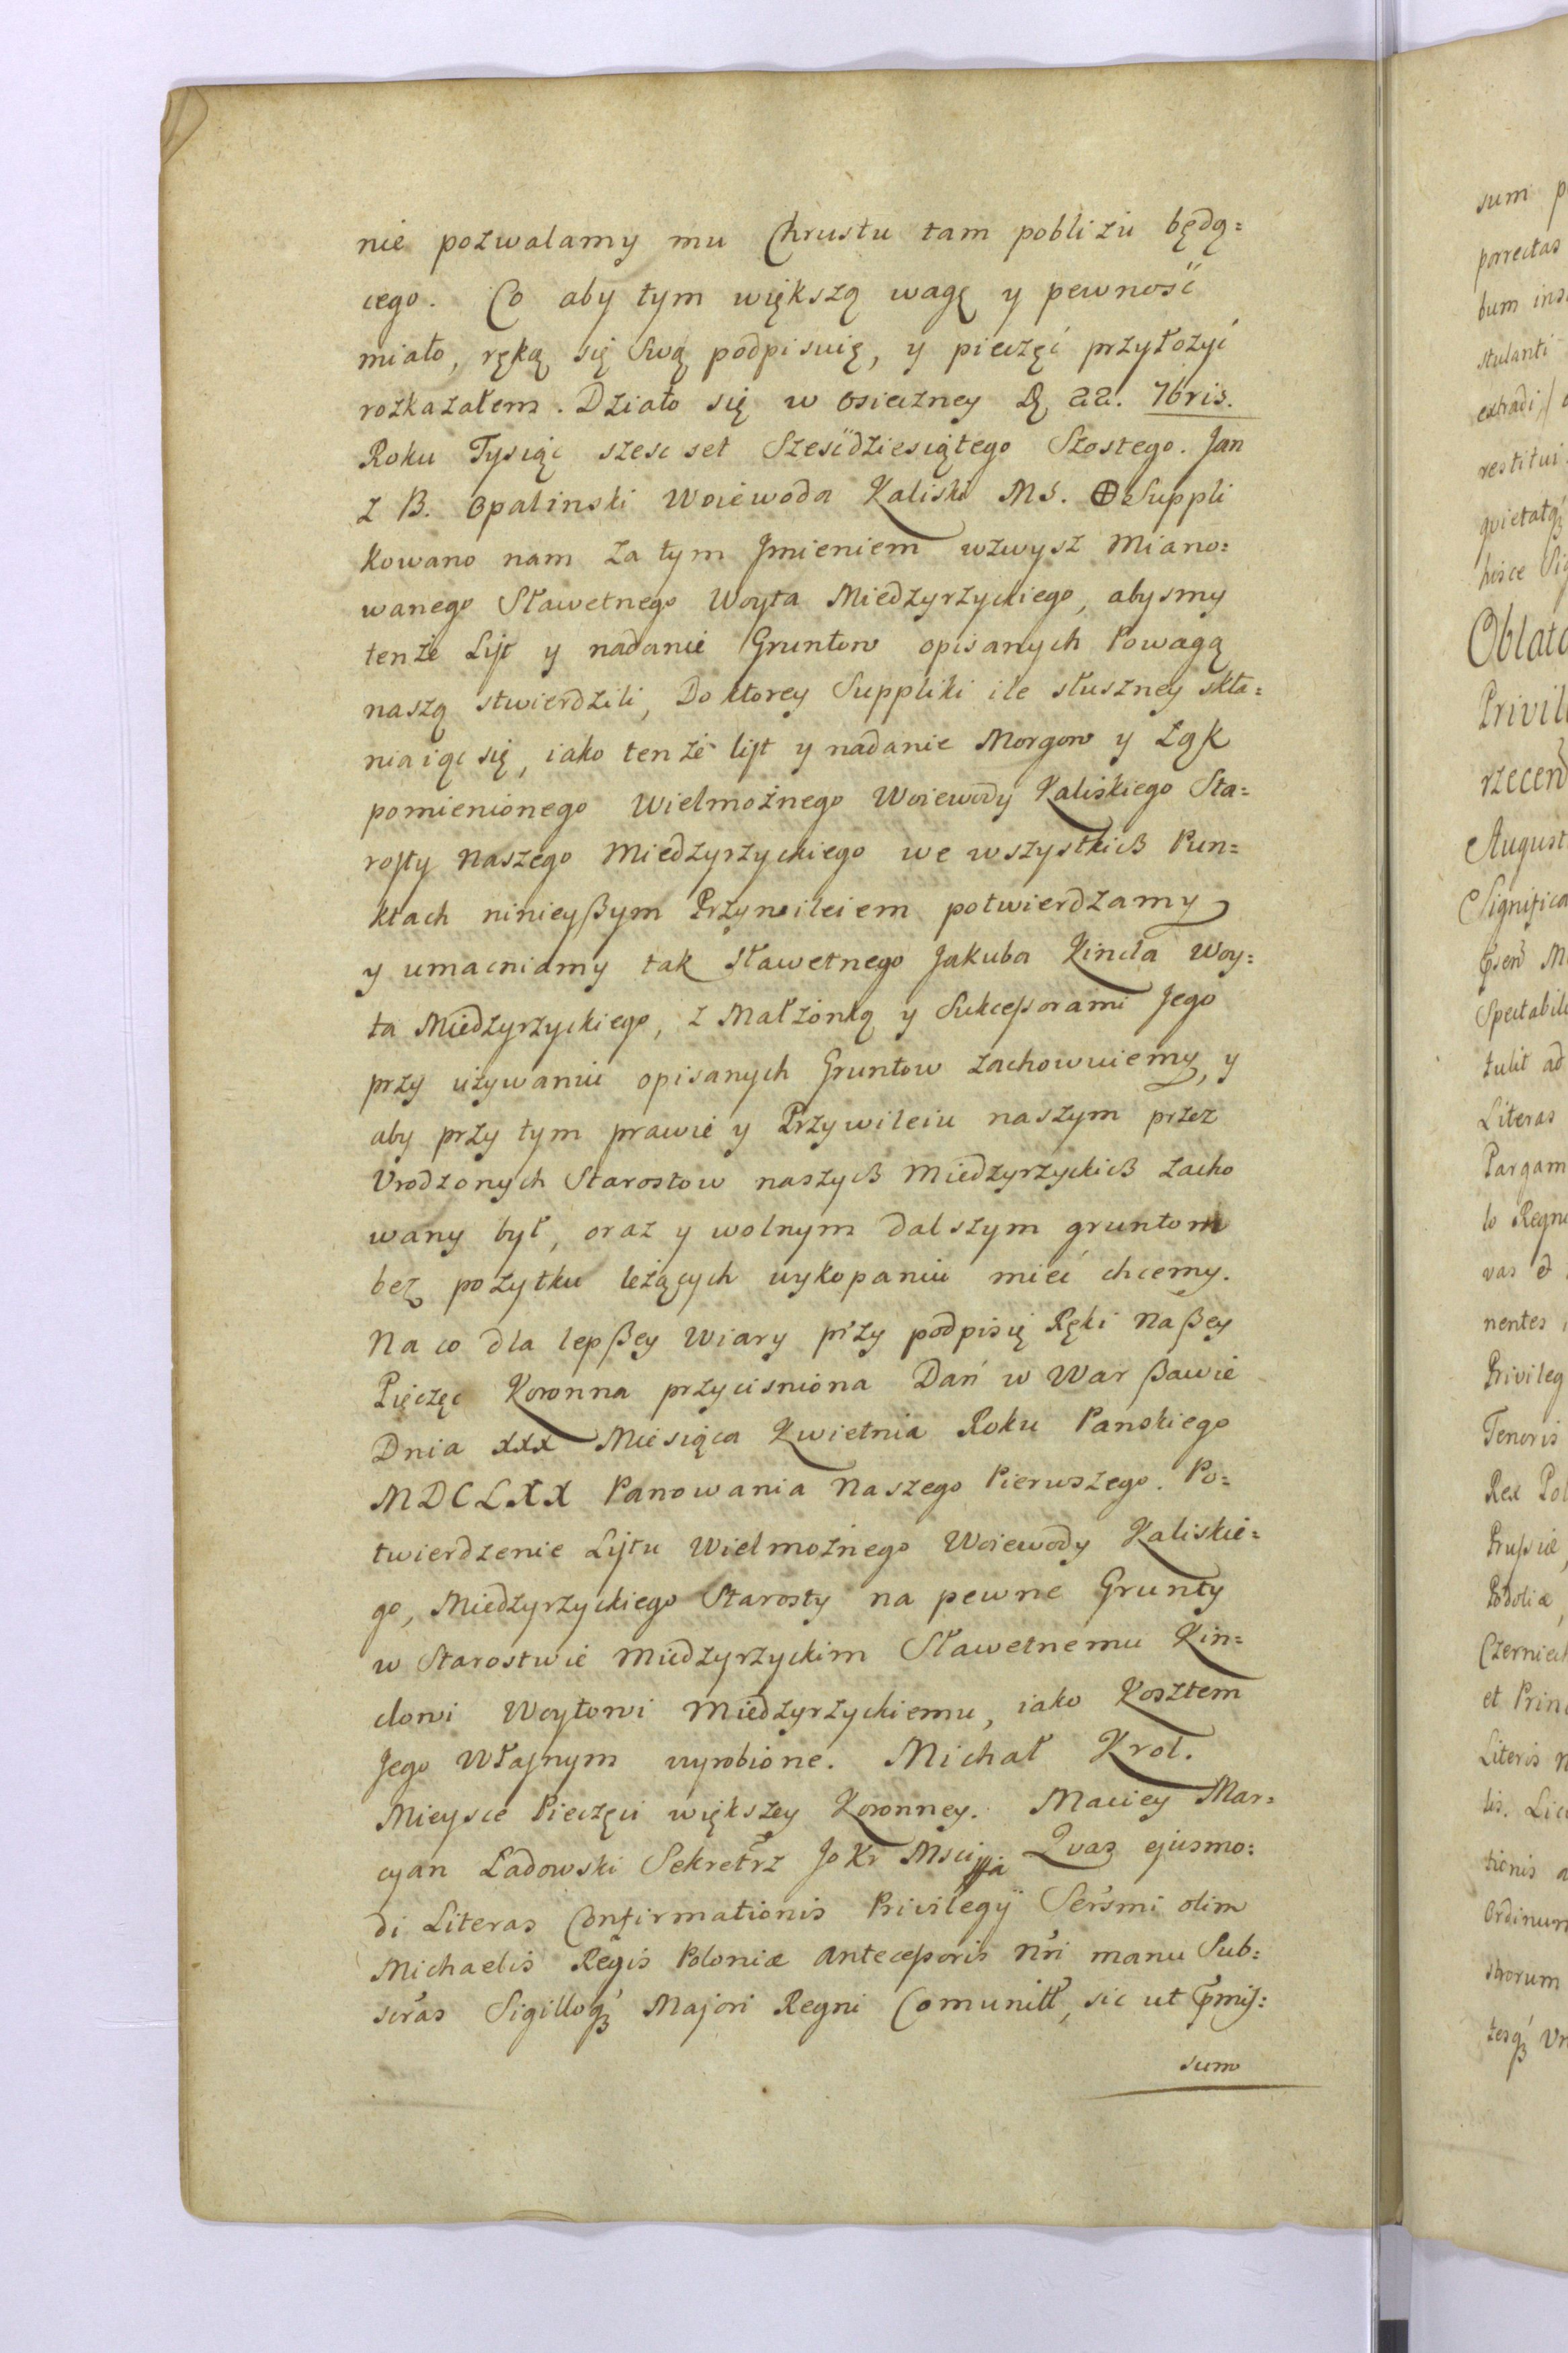 nie pozwalamy mu Chrustu tam pobliżu będą=
cego. Co aby tym większą wagę y pewność
miało, ręką się Swą podpisuię, y pieczęć przyłożyć
rozkazałem. Działo się w Osieczney D. 22. 7bris.
Roku Tysiąc szesc set Sześćdziesiątego Szostego. Jan
z B. Opalinski Woiewoda Kaliski M S. ⊕ Suppli
kowano nam za tym Jmieniem wzwysz miano=
wanego Sławetnego Woyta Miedzyrzyckiego, abysmy
tenże List y nadanie Gruntow opisanych Powagą
naszą stwierdzili, Do ktorey Suppliki ile słuszney skła=
niaiąc się, iako tenże list y nadanie Morgow y Łąk
pomienionego Wielmożnego Woiewody Kaliskiego Sta=
rosty Naszego Miedzyrzyckiego we wszystkich Pun=
ktach ninieyßym Przywileiem potwierdzamy
y umacniamy tak sławetnego Jakuba Kincla Woy=
ta Miedzyrzyckiego, z Małżonką y Sukcessorami Jego
przy używaniu opisanych Gruntow zachowuiemy, y
aby przy tym prawie y Przywileiu naszym przez
Urodzonych Starostow naszych Miedzyrzyckich zacho
wany był, oraz y wolnym dalszym gruntom
bez pożytku leżących wykopaniu mieć chcemy.
Na co dla lepßey Wiary przy podpisię Ręki Naßey
Pięczęc Koronna przycisniona Dań w Warßawie
Dnia XXX Miesiąca Kwietnia Roku Panskiego
MDCLXX Panowania Naszego Pierwszego. Po=
twierdzenie Lijtu Wielmożnego Woiewody Kaliskie=
go, Miedzyrzyckiego Starosty na pewne Grunty
w Starostwie Miedzyrzyckim Sławetnemu Kin=
clowi Woytowi Miedzyrzyckiemu, iako Kosztem
Jego Własnym wyrobione. Michał Krol.
Mieysce Pieczęci większey Koronney. Maciey Mar=
cyan Ładowski Sekretrz Jo Kr Msci Qvas ejusmo=
di Literas Confirmationis Privilegÿ Serśmi olim
Michaelis Regis Poloniæ Antecessoris Nri manu Sub=
scras Sigilloqȝ Majori Regni Comunitt, sic ut pmis=
sum
sum p
porrectas
bum ins
stulanti
extradi
restitui
qvietatqȝ
hisce Sig
Oblata
Privil
rzecen
August
Significa
M
Spectabil
tulit ad
Literas
Pargam
lo Regn
vas &
nentes
Privileg
Tenoris
Rex Pol
Prussiæ
Podoliæ
Czerniech
et Princ
Literis n
tis. Lic
tionis a
Ordinum
storum
tesqȝ Un